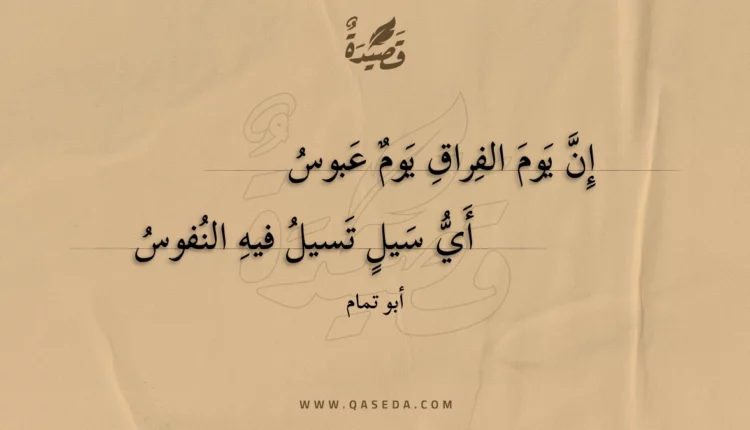 قَصِيدَةٌ
إِنَّ يَومَ الفِراقِ يَومٌ عَبوسُ
أَيُّ سَيلٍ تَسيلُ فيهِ النُفوسُ
أبو تمام
WWW.QASEDA.COM